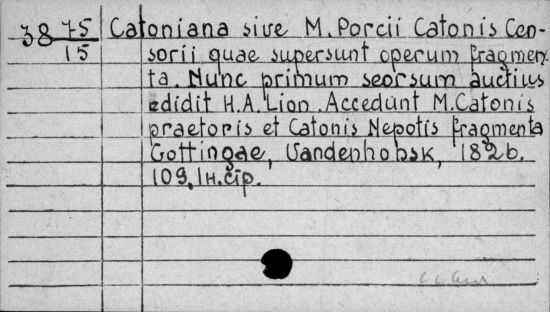 38 75/15 Catoniana sive M. Porcii Catonis Cen-
sorii quae supersunt operum fragmen-
ta. Nunc primum seorsum auctius
edidit H.A. Lion. Accedunt M. Catonis
praetoris et Catonis Nepotis fragmenta
Gottingae, Vandenhobsk, 1826.
109, 1н. стр.